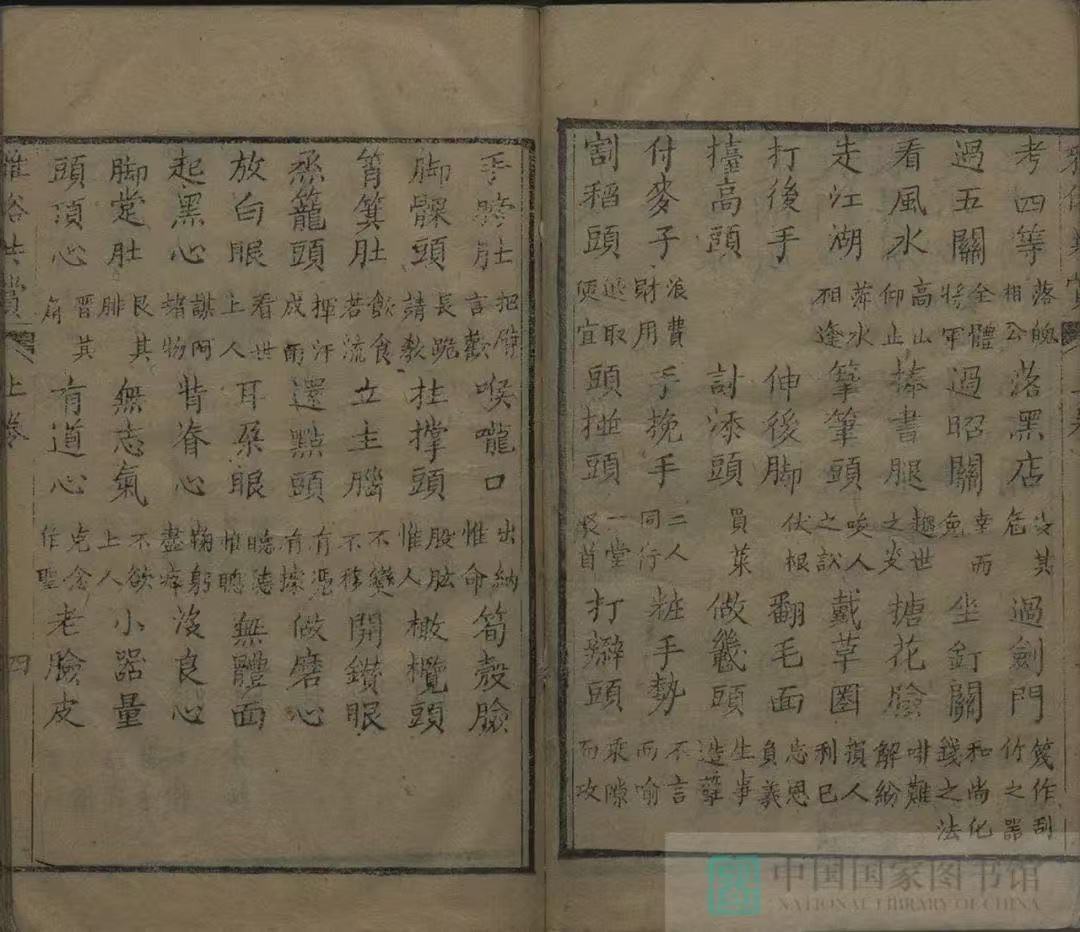 考四等 落魄相公 落黑店 沒其危 過劍門 篾作刮竹之器
過五關 全體將軍 過昭關 幸而免 坐釘關 和尚化錢之法
看風水 高山仰止 捧書腿 趨世之炎 搪花臉 啡難解紛
走江湖 萍水相逢 筆筆頭 唤人之訟 戴草圈 損人利己
打後手 伸後脚 伏根 翻毛面 忘恩負義
擡高頭 討添頭 員萊 做虀頭 生事造孽
付麥子 浪費財用 手挽手 二人同行 粧手勢 不言而喻
割稻頭 取便宜 頭碰頭 一堂聚首 打辮頭 乘隙而攻
手臂肚 把臂言歡 喉嚨口 出納惟命 筍殼臉
脚髁頭 長跪請教 拄撑頭 股肱惟人 橄欖頭
筲箕肚 飲食若流 立主腦 不變不移 開鑚眼
烝籠頭 揮汗成雨 還點頭 有憑有據 做磨心
放白眼 看世上人 耳朶眼 聽德惟聰 無體面
起黑心 謀阿堵物 背脊心 鞠躬盡瘁 沒良心
脚肚 艮其腓 無志氣 不欲上人 小器量
頭頂心 晋其角 有道心 克念作聖 老臉皮
雅俗共賞 上卷 四
中国国家图书馆
NATIONAL LIBRARY OF CHINA